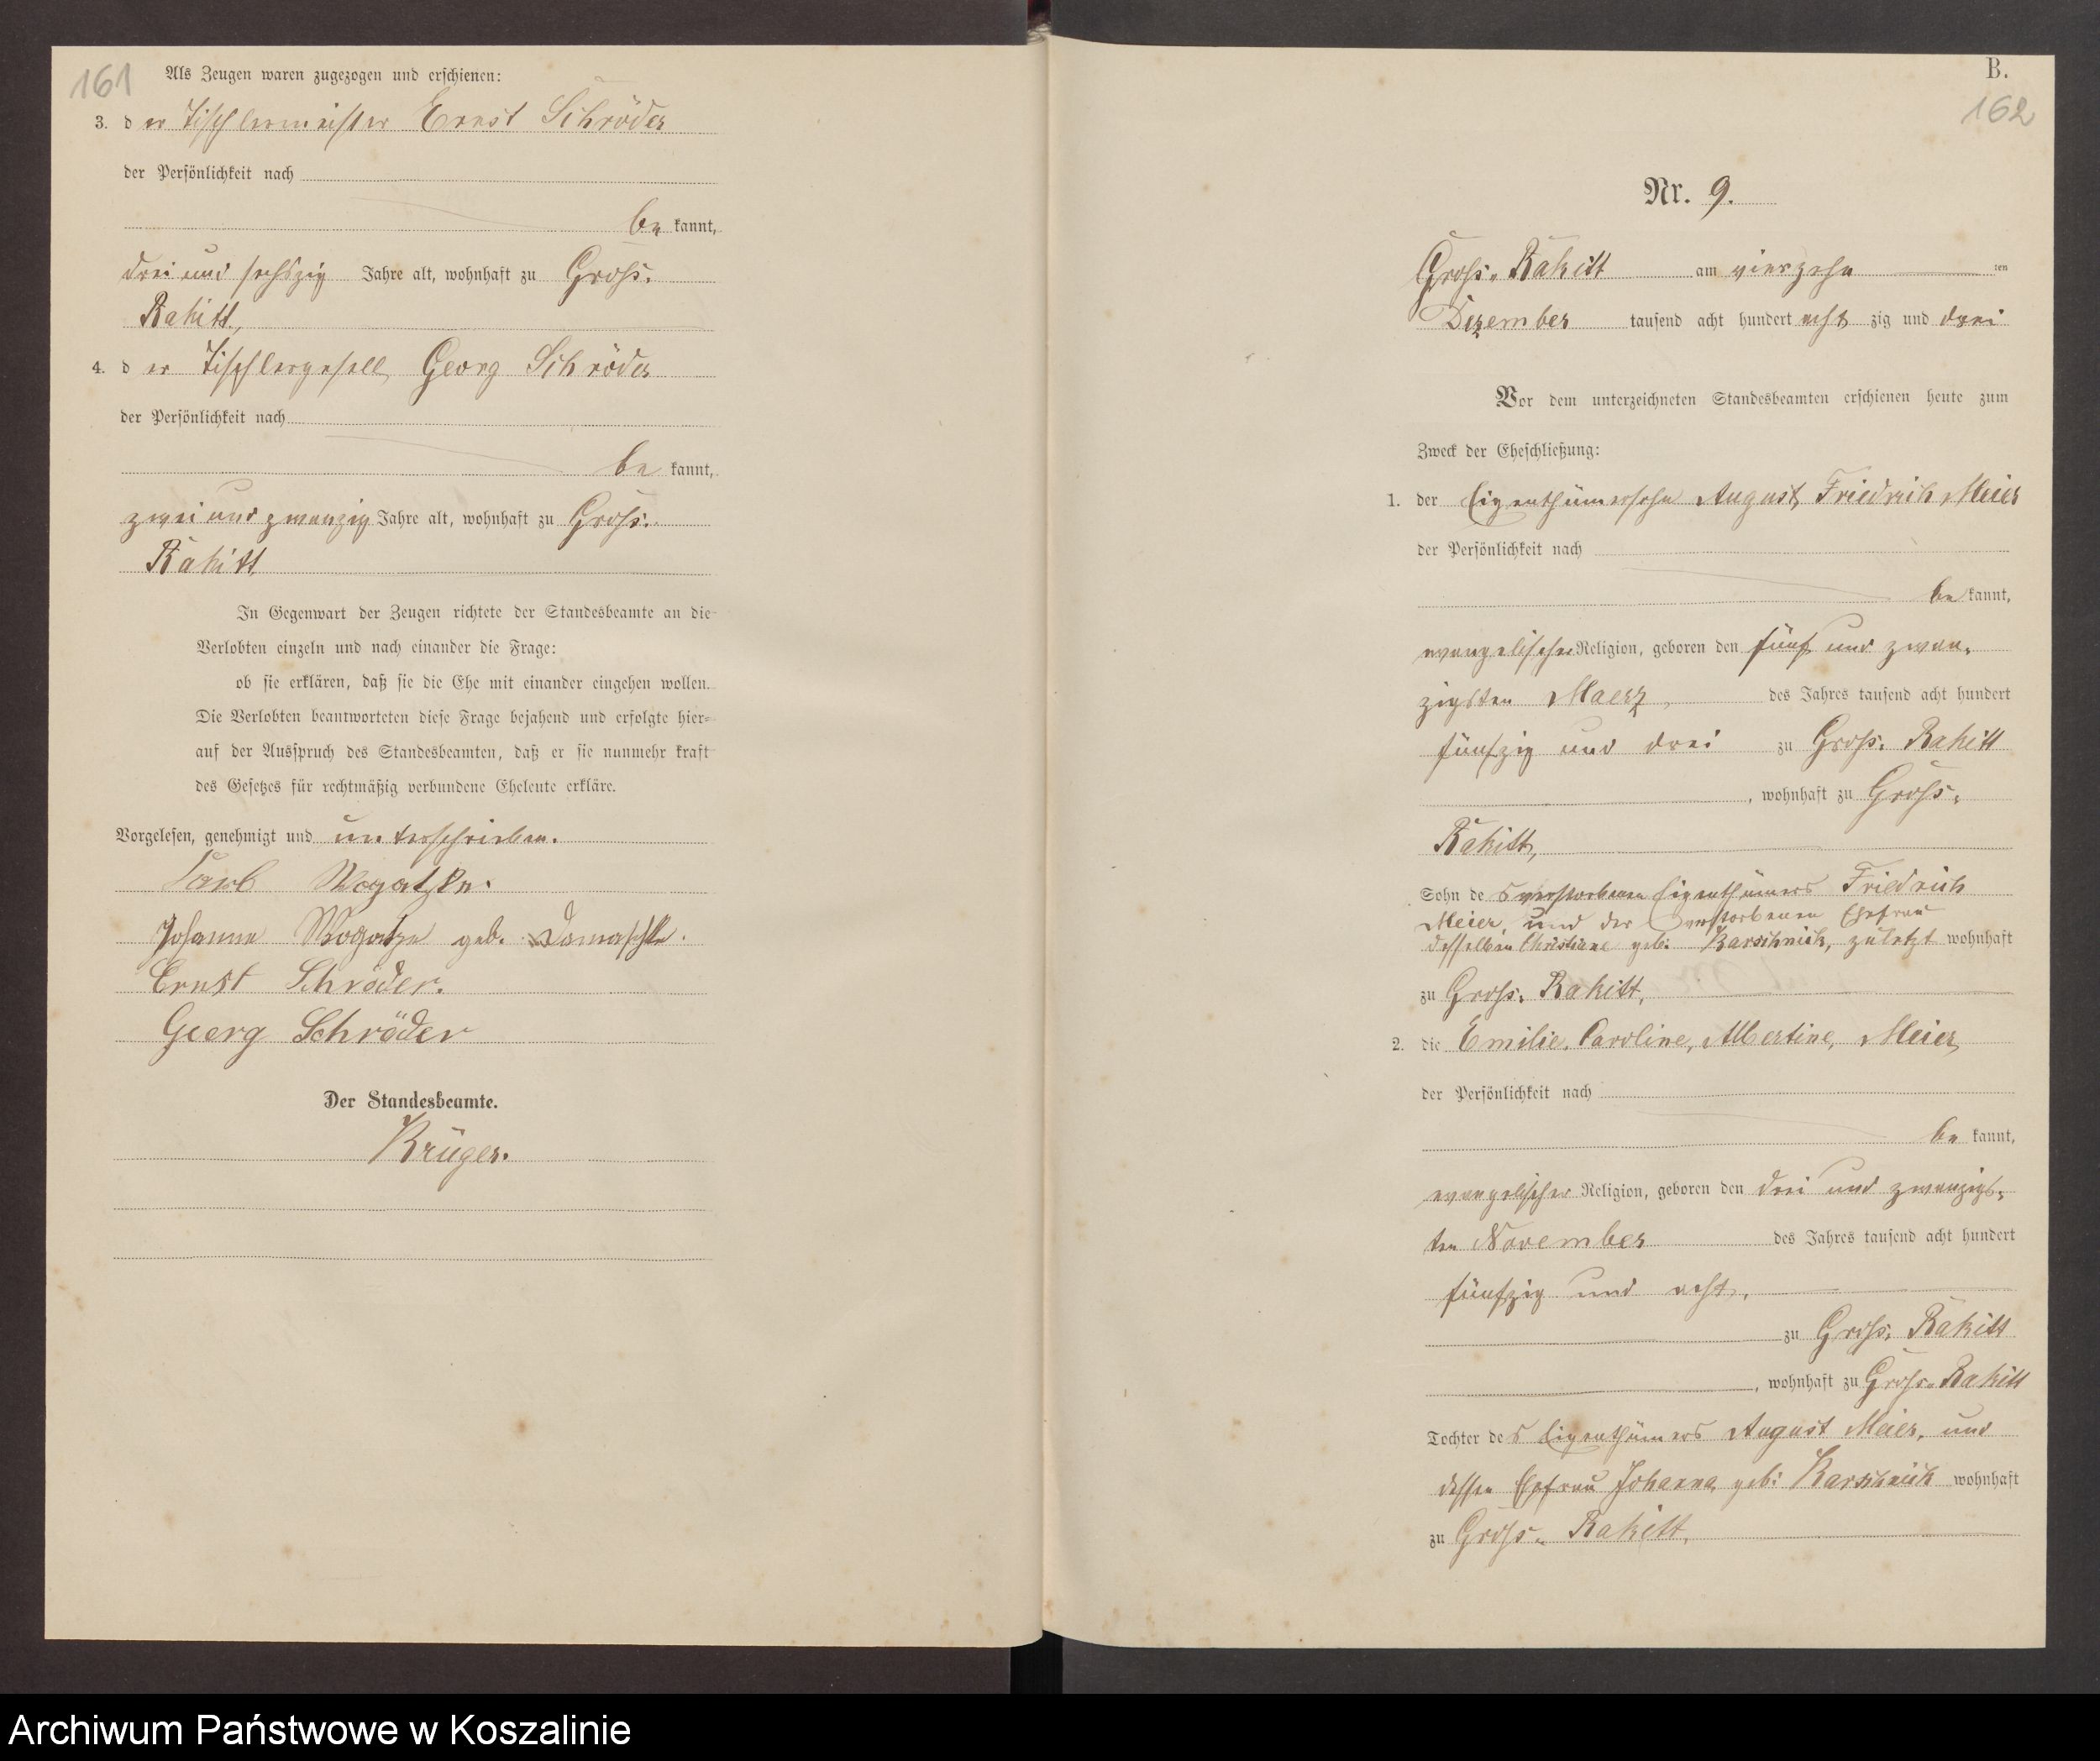 161
Als Zeugen waren zugezogen und erschienen:
3. d er Tischlermeister Ernst Schröder
der Persönlichkeit nach
be kannt,
drei und sechszig Jahre alt, wohnhaft zu Gross-
Rakitt,
4. d er Tischlergesell Georg Schröder
der Persönlichkeit nach
be kannt,
zwei und zwanzig Jahre alt, wohnhaft zu Gross-
Rakitt
In Gegenwart der Zeugen richtete der Standesbeamte an die
Verlobten einzeln und nach einander die Frage:
ob sie erklären, daß sie die Ehe mit einander eingehen wollen.
Die Verlobten beantworteten diese Frage bejahend und erfolgte hier-
auf der Ausspruch des Standesbeamten, daß er sie nunmehr kraft
des Gesetzes für rechtmäßig verbundene Eheleute erkläre.
Vorgelesen, genehmigt und unterschrieben.
Carl Mogatzke.
Johanne Mogatzke geb. Damaschke.
Ernst Schröder.
Georg Schröder
Der Standesbeamte.
Krüger.
B.
162
Nr. 9.
Gross-Rakitt am vierzehn ten
Dezember tausend acht hundert acht zig und drei
Vor dem unterzeichneten Standesbeamten erschienen heute zum
Zweck der Eheschließung:
1. der Eigenthümersohn August, Friedrich Meier
der Persönlichkeit nach
be kannt,
evangelischer Religion, geboren den fünf und zwan-
zigsten Maerz, des Jahres tausend acht hundert
fünfzig und drei zu Gross-Rakitt
, wohnhaft zu Gross-
Rakitt,
Sohn de s verstorbenen Eigenthümers Friedrich
Meier, und der verstorbenen Ehefrau
desselben Christiane geb: Karschnick, zuletzt wohnhaft
zu Gross-Rakitt,
2. die Emilie, Caroline, Albertine, Meier,
der Persönlichkeit nach
be kannt,
evangelischer Religion, geboren den drei und zwanzigs-
ten November des Jahres tausend acht hundert
fünfzig und acht,
zu Gross-Rakitt
, wohnhaft zu Gross-Rakitt
Tochter de s Eigenthümers August Meier, und
dessen Ehefrau Johanna geb: Karschnick wohnhaft
zu Gross-Rakitt,
Archiwum Państwowe w Koszalinie